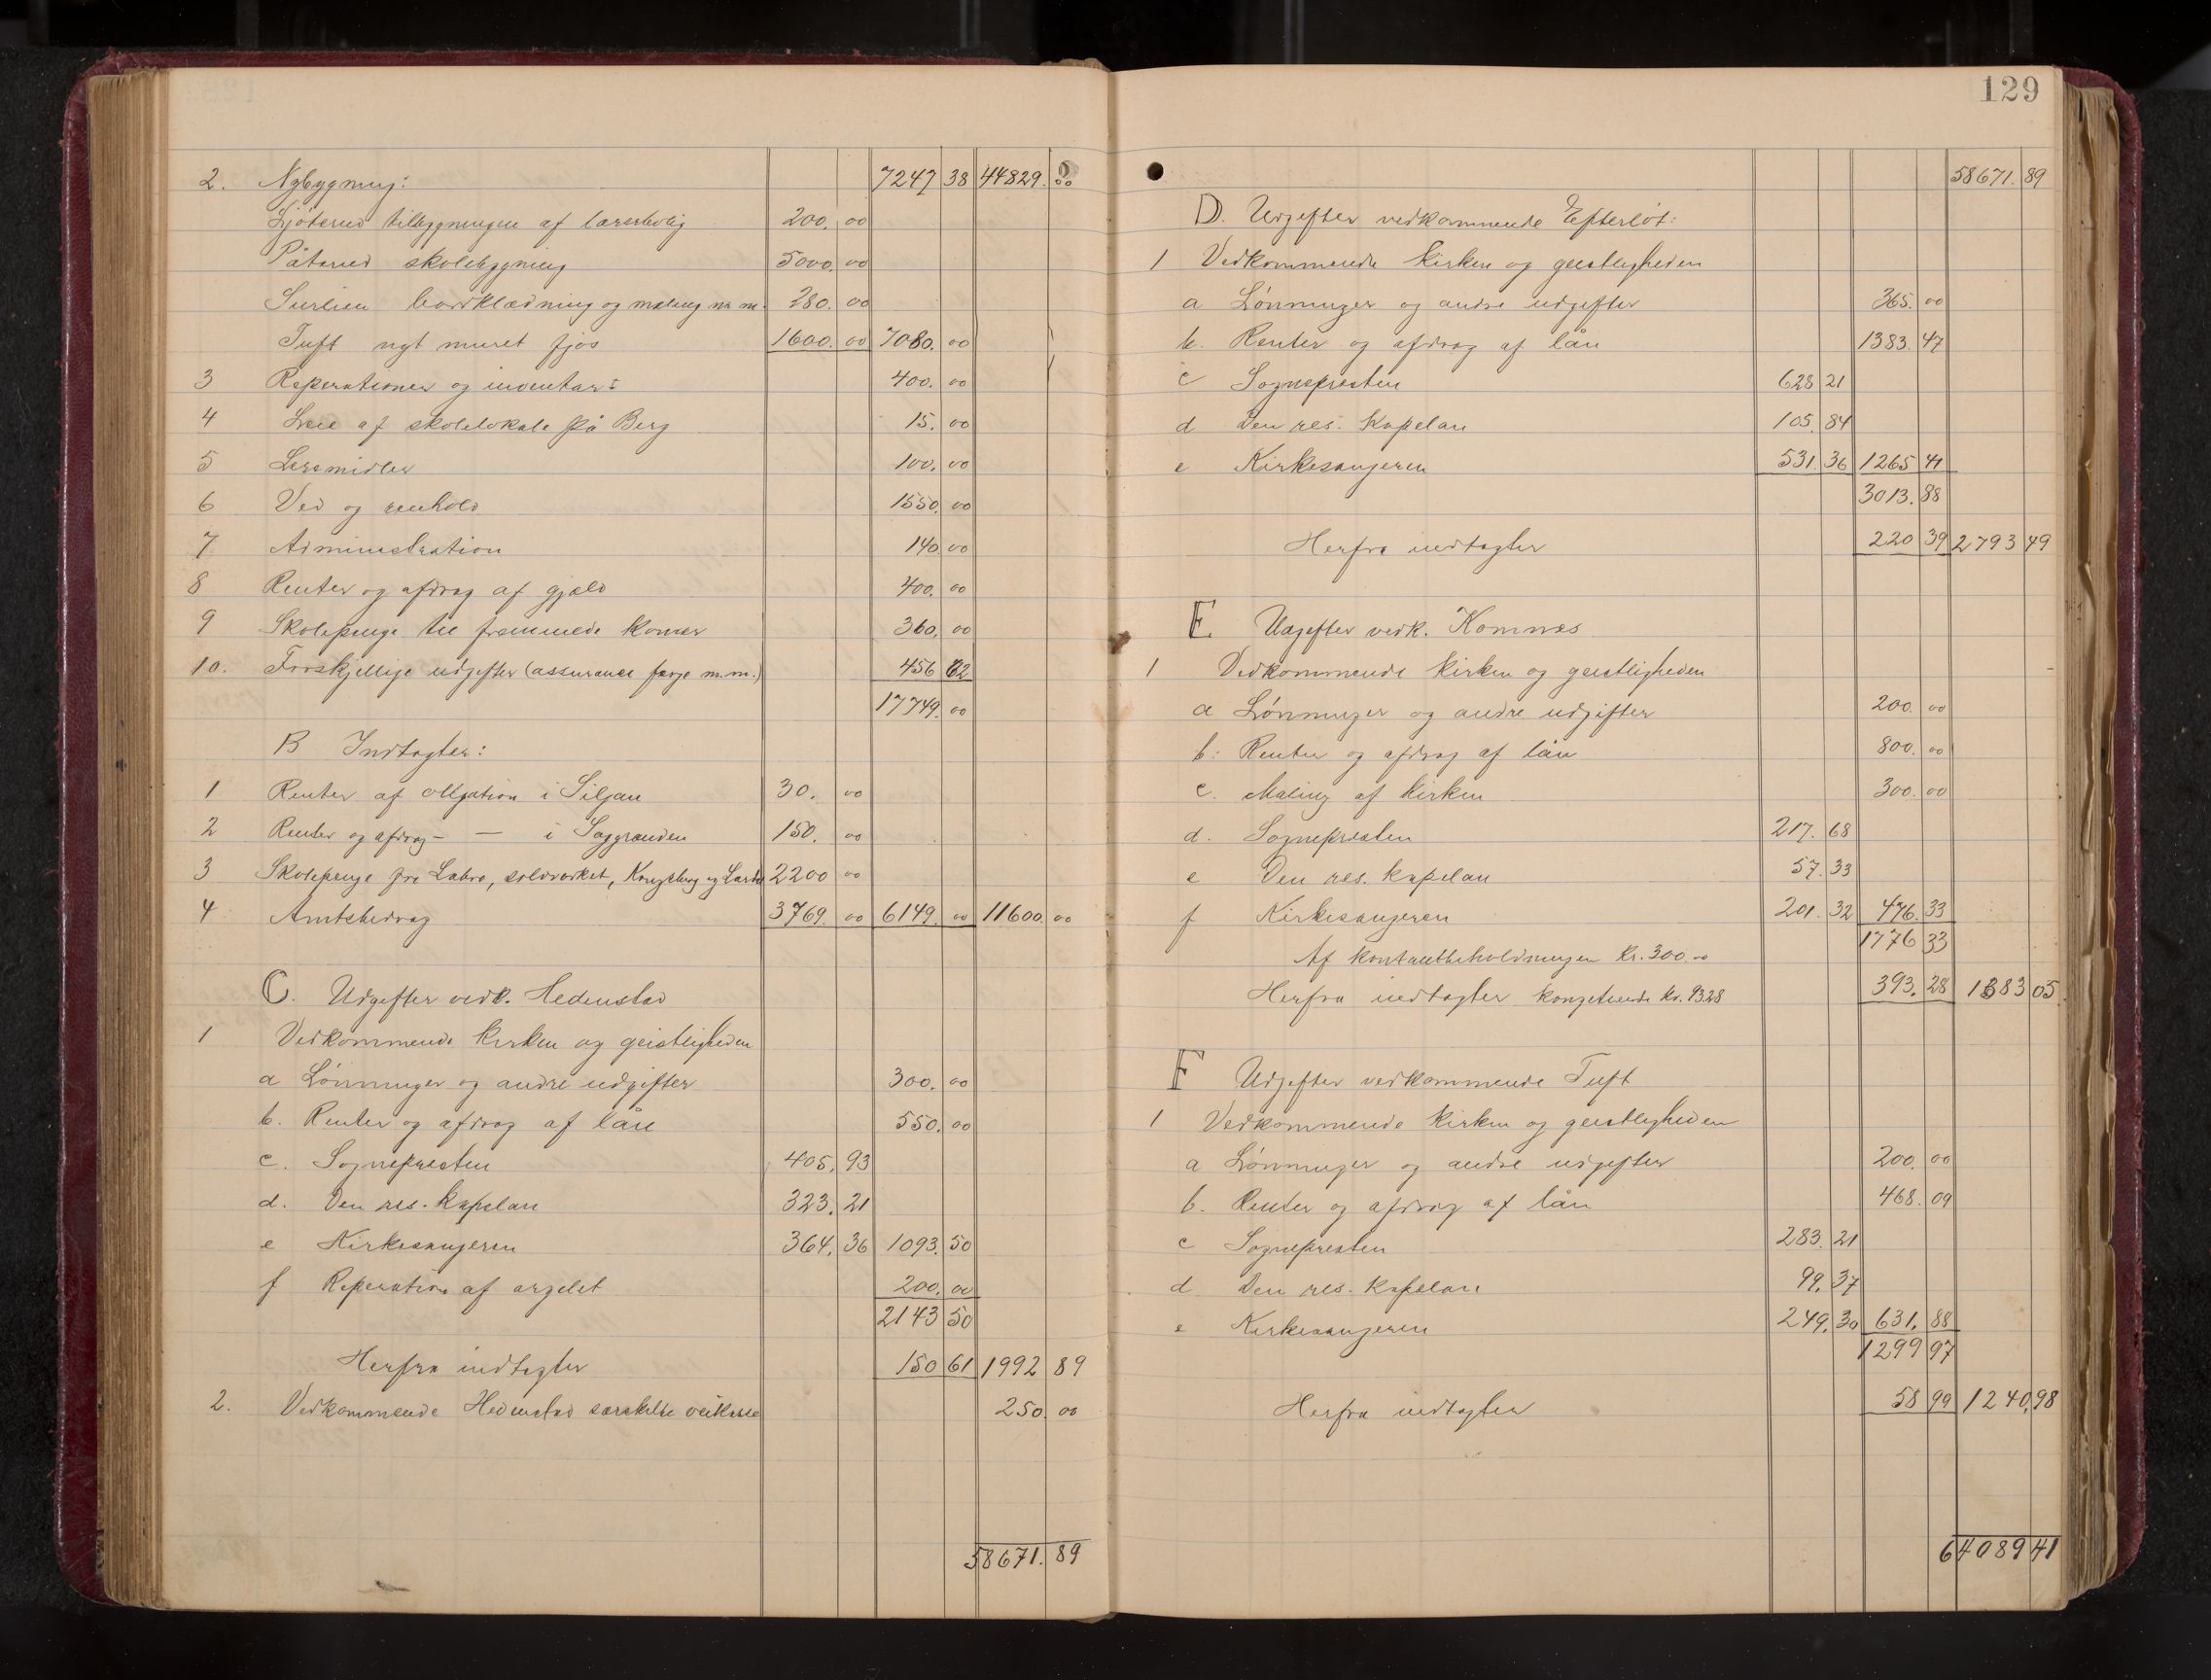 2. Nybygning: 7247 38 44829. 00
Ljøterud tilbygningen af lærerbolig 200. 00
Påterud skolebygning 5000. 00
Surlien bordklædning og maling m. m. 280. 00
Tuft nyt muret fjøs 1600. 00 7080. 00
3 Reperationer og inventar: 400. 00
4 Leie af skolelokale på Berg 15. 00
5 Læremidler 100. 00
6 Ved og renhold 1550. 00
7. Administration 140. 00
8 Renter og afdrag af gjæld 400. 00
9 Skolepenge til fremmede komuner 360. 00
10. Forskjellige udgifter (assurance færge m.m.) 456 62
17749. 00
B Indtægter:
1 Renter af obligation i Siljan 30. 00
2 Renter og afdrag - — i Saggrenden 150. 00
3 Skolepenge fra Labro, sølvverket, Kongsberg og Lardal 2200 00
4 Amtsbidrag 3769. 00 6149. 00 11600. 00
C. Udgifter vedk. Hedenstad
1 Vedkommende kirken og geistligheden
a Lønninger og andre udgifter 300. 00
b. Renter og afdrag af lån 550. 00
c. Sognepresten 405. 93
d. Den res. kapelan 323. 21
e Kirkesangeren 364. 36 1093. 50
f Reperation af orgelet 200. 00
2143 50
Herfra indtægter 150 61 1992 89
2. Vedkommende Hedenstad særskilte veikasse 250. 00
58671. 89
129
58671. 89
D. Udgifter vedkommende Efteløt:
1 Vedkommende kirken og geistligheden
a Lønninger og andre udgifter 365. 00
b. Renter og afdrag af lån 1383. 47
c Sognepresten 628 21
d Den res. kapelan 105. 84
e Kirkesangeren 531. 36 1265 41
3013. 88
Herfra indtægter 220 39 2793 49
E Udgifter vedk. Komnes
1 Vedkommende kirken og geistligheden
a Lønninger og andre udgifter 200. 00
b. Renter og afdrag af lån 800. 00
c. Maling af kirken 300. 00
d. Sognepresten 217. 68
e Den res. kapelan 57. 33
f Kirkesangeren 201. 32 476. 33
1776 33
Af kontantbeholdningen Kr. 300 00
Herfra indtægter Kr. 9328 393. 28 1383 05.
F Udgifter vedkommende Tuft
1 Vedkommende kirken og geistligheden
a Lønninger og andre udgifter 200. 00
b. Renter og afdrag af lån 468. 09
c Sognepresten 283. 21
d Den res. kapelan 99. 37
e Kirkesangeren 249. 30 631. 88
1299 97
Herfra indtægter 58 99 1240,98
64089 41